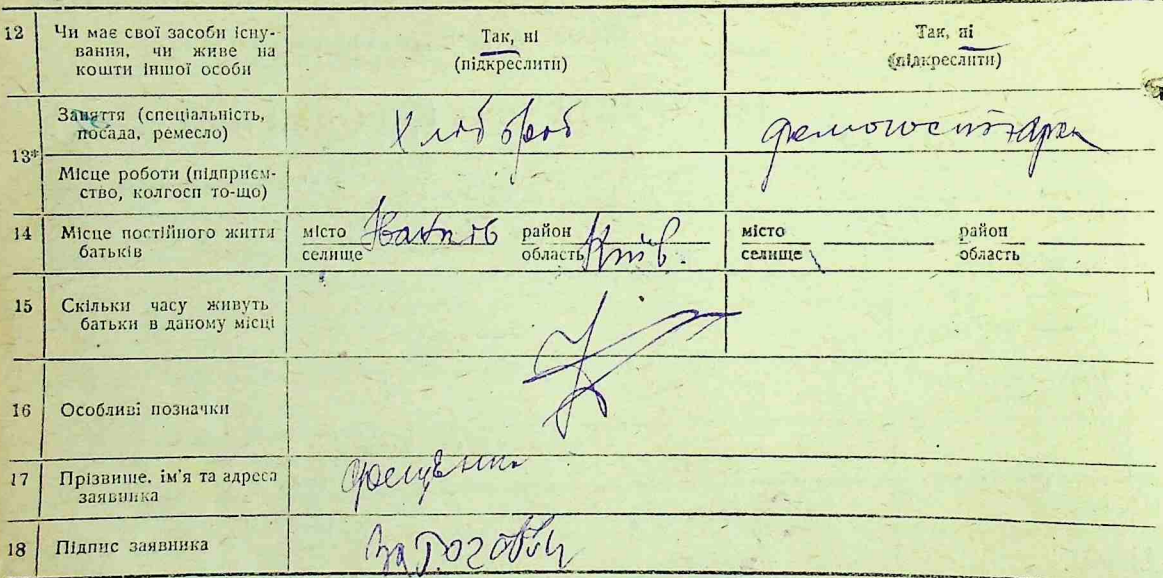 12 Чи має свої засоби існу-
вання, чи живе на
кошти іншої особи
Так, ні
(підкреслити)
Так, ні
(підкреслити)
13* Заняття (спеціальність,
посада, ремесло)
Хлібороб
домогосподарка
Місце роботи (підприєм-
ство, колгосп то-що)
14 Місце постійного життя
батьків
місто
селище
район
область Київ.
місто
селище
район
область
15 Скільки часу живуть
батьки в даному місці
16 Особливі позначки
17 Прізвище, ім'я та адреса
заявника
18 Підпис заявника